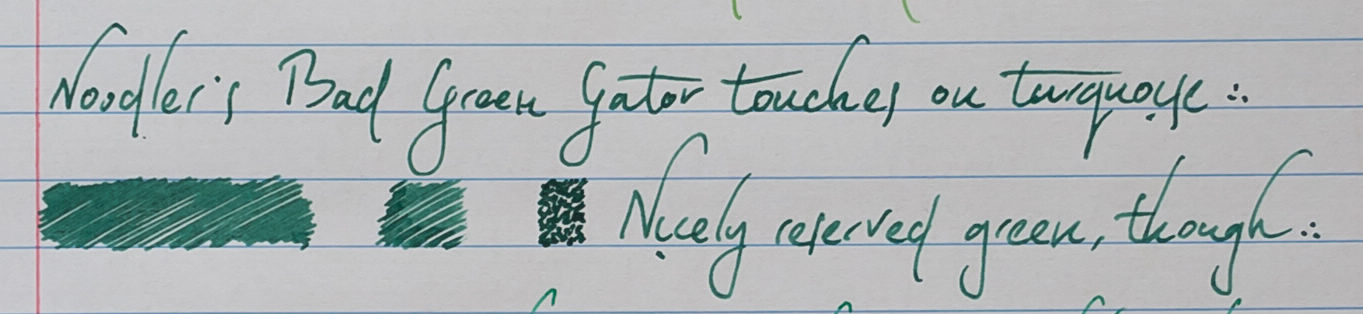 Noodler's Bad Green Gator touches on turquoise ∴
Nicely reserved green, though ∴